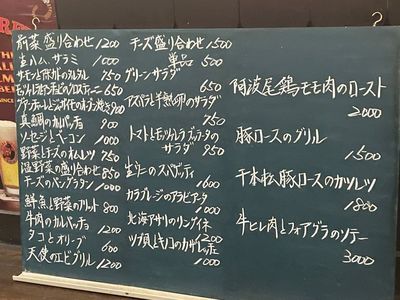 前菜盛り合わせ 1200
生ハム、サラミ 1000
サーモンと帆立のタルタル 750
650
900
真鯛のカルパッチョ 900
ソーセージとベーコン 1000
野菜とチーズのオムレツ 750
温野菜の盛り合わせ 850
チーズのパングラタン 1000
鮮魚と野菜のフリット 800
牛肉のカルパッチョ 1200
タコとオリーブ 600
天使のエビグリル 1200
チーズ盛り合わせ 1500
単品 500
グリーンサラダ 650
アスパラと半熟卵のサラダ 750
トマトとモッツァレラブッラータの
サラダ 950
生ウニのスパゲッティ 1600
カラブレーゼのアラビアータ 1000
北海アサリのリングイネ 1200
ツブ貝とキノコのカサレッチェ 1000
阿波尾鶏モモ肉のロースト
2000
豚ロースのグリル
1500
千本松豚ロースのカツレツ
1800
牛ヒレ肉とフォアグラのソテー
3000